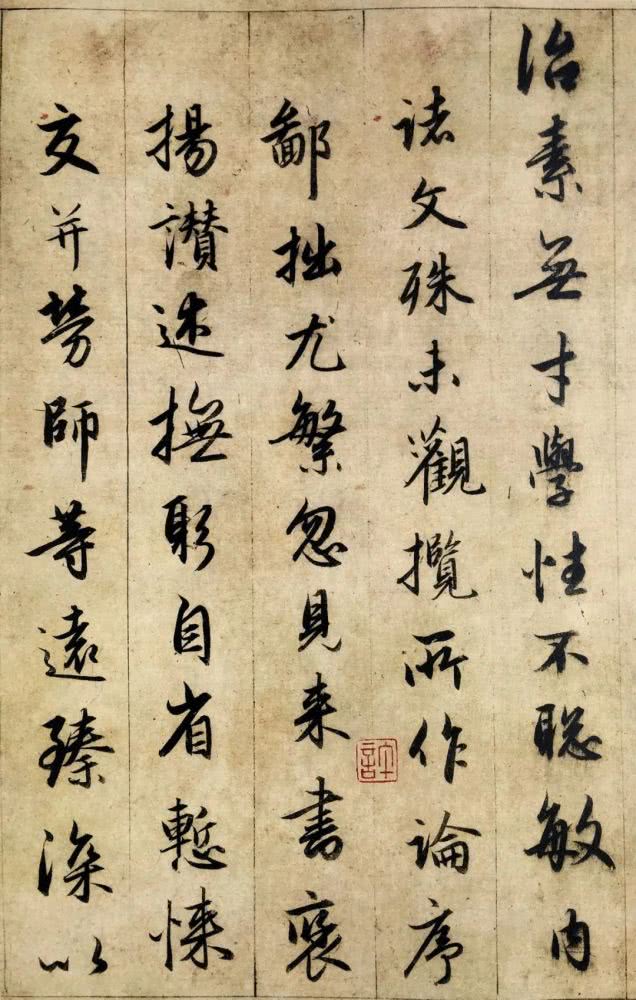 治素無才學性不聰敏内
諸文殊未觀攬所作論序
鄙拙尤繁忽見来書褒
揚讃述撫躬自省慙悚
交并勞師等遠臻深以
許